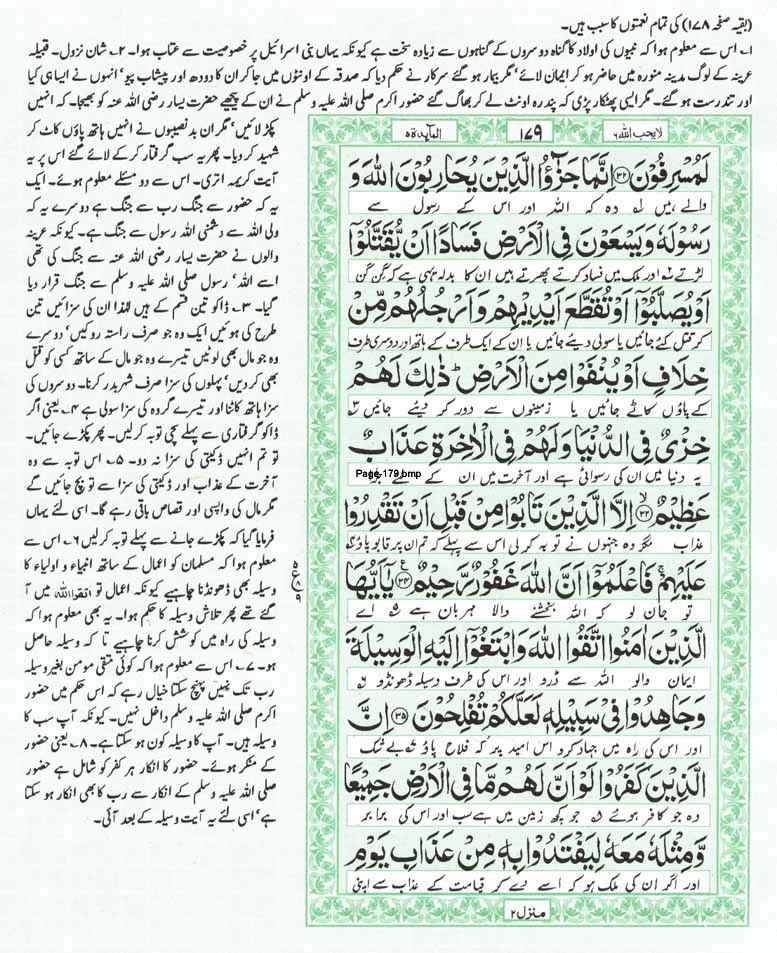 (بقیہ صفحہ ۱۷۸) کی تمام نعمتوں کا سبب ہیں۔
۱۔ اس سے معلوم ہوا کہ نبیوں کی اولاد کا گناہ دوسروں کے گناہوں سے زیادہ سخت ہے کیونکہ یہاں بنی اسرائیل پر خصوصیت سے عتاب ہوا۔ ۲۔ شان نزول۔ قبیلہ
عرینہ کے لوگ مدینہ منورہ میں حاضر ہو کر ایمان لائے' مگر بیمار ہو گئے سرکار نے حکم دیا کہ صدقہ کے اونٹوں میں جا کر ان کا دودھ اور پیشاب پیو' انہوں نے ایسا ہی کیا
اور تندرست ہو گئے۔ مگر ایسی پھٹکار پڑی کہ پندرہ اونٹ لے کر بھاگ گئے حضور اکرم صلی اللہ علیہ وسلم نے ان کے پیچھے حضرت یسار رضی اللہ عنہ کو بھیجا۔ کہ انہیں
پکڑ لائیں' مگر ان بد نصیبوں نے انہیں ہاتھ پاؤں کاٹ کر
شہید کر دیا۔ پھر یہ سب گرفتار کر کے لائے گئے اس پر یہ
آیت کریمہ اتری۔ اس سے دو مسئلے معلوم ہوئے۔ ایک
یہ کہ حضور سے جنگ رب سے جنگ ہے دوسرے یہ کہ
ولی اللہ سے دشمنی اللہ رسول سے جنگ ہے۔ کیونکہ عرینہ
والوں نے حضرت یسار رضی اللہ عنہ سے جنگ کی تھی
اسے اللہ' رسول صلی اللہ علیہ وسلم سے جنگ قرار دیا
گیا۔ ۳۔ ڈاکو تین قسم کے ہیں لہٰذا ان کی سزائیں تین
طرح کی ہوئیں ایک وہ جو صرف راستہ روکیں' دوسرے
وہ جو مال بھی لوٹیں تیسرے وہ جو مال کے ساتھ کسی کو قتل
بھی کر دیں' پہلوں کی سزا صرف شہر بدر کرنا۔ دوسروں کی
سزا ہاتھ کاٹنا اور تیسرے گروہ کی سزا سولی ہے ۴۔ یعنی اگر
ڈاکو گرفتاری سے پہلے سچی توبہ کر لیں۔ پھر پکڑے جائیں۔
تو تم انہیں ڈکیتی کی سزا نہ دو۔ ۵۔ اس توبہ سے وہ
آخرت کے عذاب اور ڈکیتی کی سزا سے تو بچ جائیں گے
مگر مال کی واپسی اور قصاص باقی رہے گا۔ اسی لئے یہاں
فرمایا گیا کہ پکڑے جانے سے پہلے توبہ کر لیں ۶۔ اس سے
معلوم ہوا کہ مسلمان کو اعمال کے ساتھ انبیاء و اولیاء کا
وسیلہ بھی ڈھونڈنا چاہیے کیونکہ اعمال تو اتقوا اللہ میں آ
گئے تھے پھر تلاش وسیلہ کا حکم ہوا۔ یہ بھی معلوم ہوا کہ
وسیلہ کی راہ میں کوشش کرنا چاہیے تا کہ وسیلہ حاصل
ہو۔ ۷۔ اس سے معلوم ہوا کہ کوئی متقی مومن بغیر وسیلہ
رب تک نہیں پہنچ سکتا خیال رہے کہ اس حکم میں حضور
اکرم صلی اللہ علیہ وسلم داخل نہیں۔ کیونکہ آپ سب کا
وسیلہ ہیں۔ آپ کا وسیلہ کون ہو سکتا ہے۔ ۸۔ یعنی حضور
کے منکر ہوئے۔ حضور کا انکار ہر کفر کو شامل ہے حضور
صلی اللہ علیہ وسلم کے انکار سے رب کا بھی انکار ہو سکتا
ہے' اسی لئے یہ آیت وسیلہ کے بعد آئی۔
لا یحب اللہ ۶ ۱۷۹ المآئدۃ ۵
لَمُسْرِفُوْنَ ﴿۳۲﴾ اِنَّمَا جَزٰٓؤُا الَّذِیْنَ یُحَارِبُوْنَ اللّٰهَ وَ
والے ہیں وہ کہ اللہ اور اس کے رسول سے
رَسُوْلَهٗ وَیَسْعَوْنَ فِی الْاَرْضِ فَسَادًا اَنْ یُّقَتَّلُوْۤا
لڑتے ۲ اور ملک میں فساد کرتے پھرتے ہیں ان کا بدلہ یہی ہے کہ گن گن
اَوْ یُصَلَّبُوْۤا اَوْ تُقَطَّعَ اَیْدِیْهِمْ وَاَرْجُلُهُمْ مِّنْ
کر قتل کئے جائیں یا سولی دیئے جائیں یا ان کے ایک طرف کے ہاتھ اور دوسری طرف
خِلَافٍ اَوْ یُنْفَوْا مِنَ الْاَرْضِ ؕ ذٰلِكَ لَهُمْ
کے پاؤں کاٹے جائیں یا زمینوں سے دور کر دیئے جائیں ۳
خِزْیٌ فِی الدُّنْیَا وَلَهُمْ فِی الْاٰخِرَةِ عَذَابٌ
یہ دنیا میں ان کی رسوائی ہے اور آخرت میں ان کے لئے بڑا
Page-179.bmp
عَظِیْمٌ ﴿۳۳﴾ اِلَّا الَّذِیْنَ تَابُوْا مِنْ قَبْلِ اَنْ تَقْدِرُوْا
عذاب مگر وہ جنہوں نے توبہ کر لی اس سے پہلے کہ تم ان پر قابو پاؤ ۴
عَلَیْهِمْ ۚ فَاعْلَمُوْۤا اَنَّ اللّٰهَ غَفُوْرٌ رَّحِیْمٌ ﴿۳۴﴾ یٰۤاَیُّهَا
تو جان لو کہ اللہ بخشنے والا مہربان ہے ۵ اے
الَّذِیْنَ اٰمَنُوا اتَّقُوا اللّٰهَ وَابْتَغُوْۤا اِلَیْهِ الْوَسِیْلَةَ
ایمان والو اللہ سے ڈرو اور اس کی طرف وسیلہ ڈھونڈو ۶
وَجَاهِدُوْا فِیْ سَبِیْلِهٖ لَعَلَّكُمْ تُفْلِحُوْنَ ﴿۳۵﴾ اِنَّ
اور اس کی راہ میں جہاد کرو اس امید پر کہ فلاح پاؤ ۷ بے شک
الَّذِیْنَ كَفَرُوْا لَوْ اَنَّ لَهُمْ مَّا فِی الْاَرْضِ جَمِیْعًا
وہ جو کافر ہوئے ۸ جو کچھ زمین میں ہے سب اور اس کی برابر
وَّمِثْلَهٗ مَعَهٗ لِیَفْتَدُوْا بِهٖ مِنْ عَذَابِ یَوْمِ
اور اگر ان کی ملک ہو کہ اسے دے کر قیامت کے عذاب سے اپنی
منزل ۲